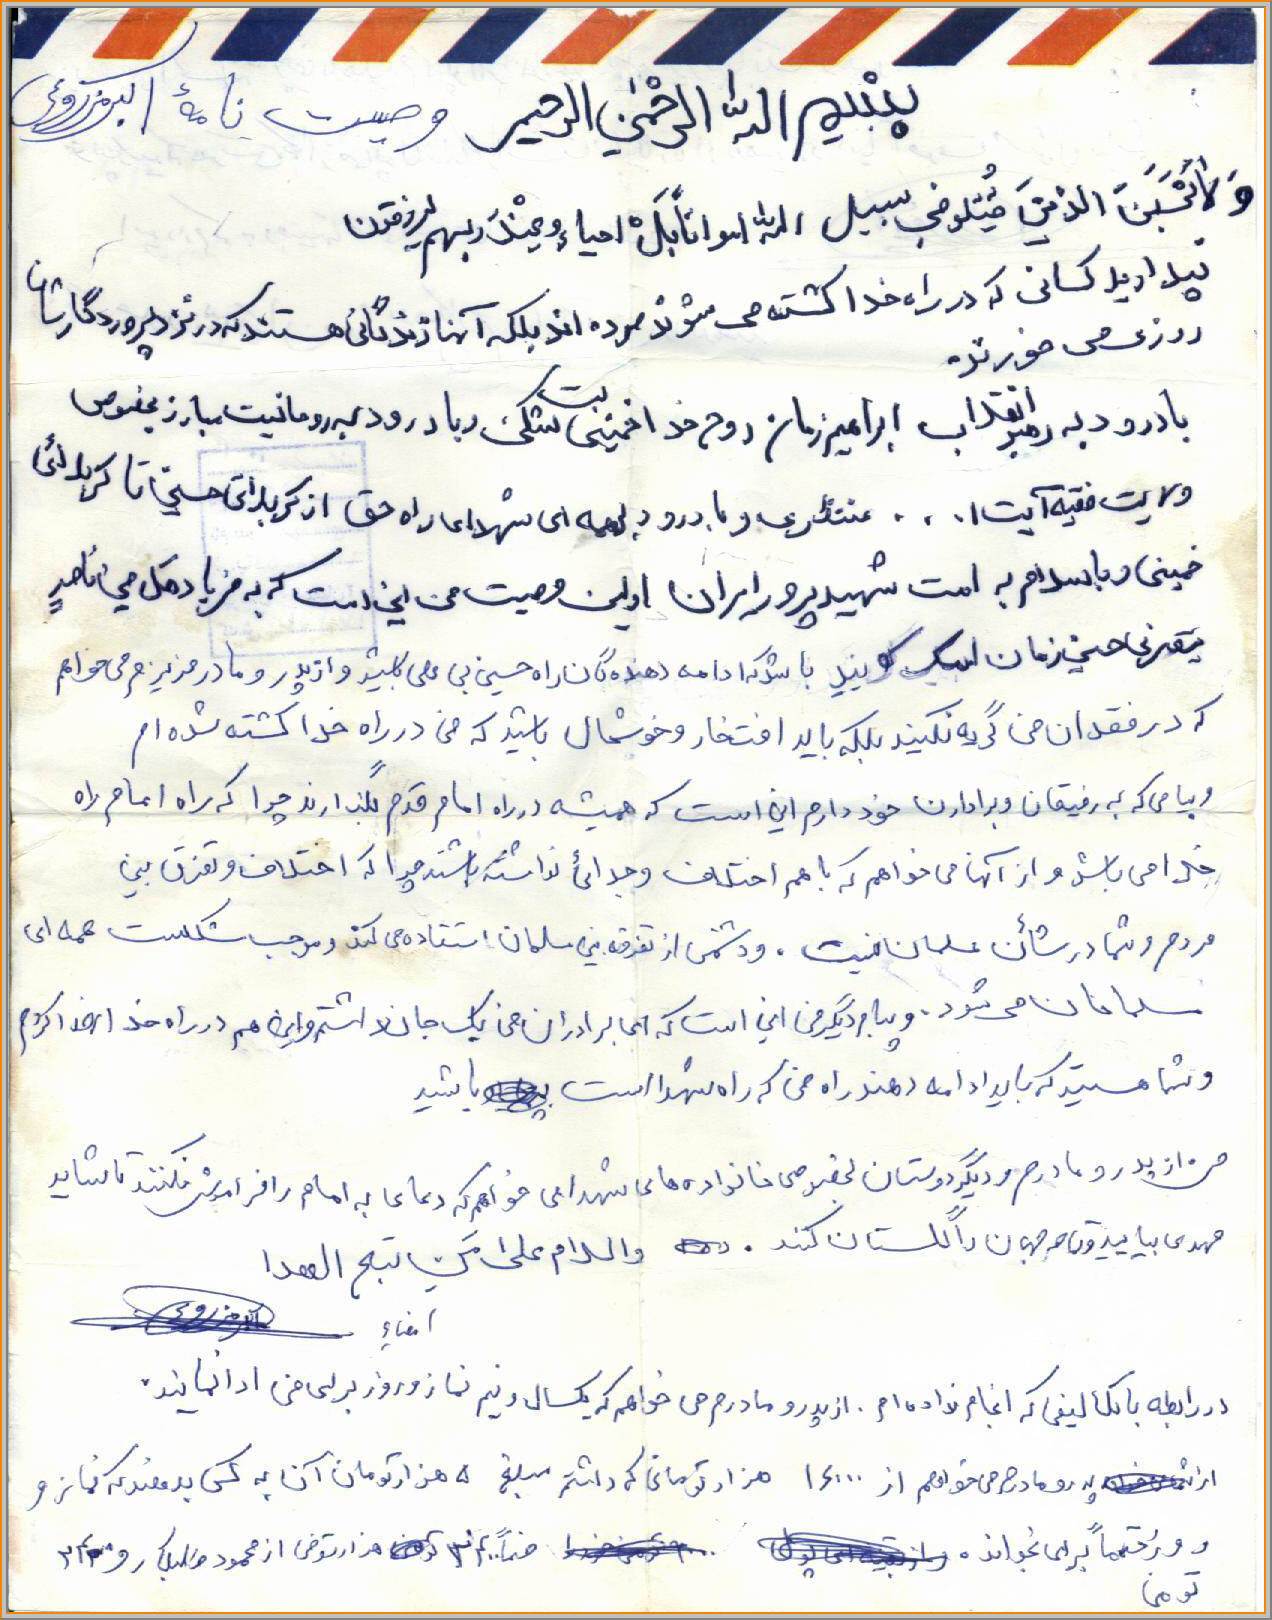 بِسْمِ اللّه الرَّحْمٰنِ الرحیم وصیت نامهٔ اکبر مزروعی
وَلاتَحْسَبَنَّ الذّینَ قُتِلو فی سبیل الله امواتاً بَلْ احیاءٍ وعِنْدَ ربهم یرزقون
نپندارید کسانی که در راه خدا کشته می شوند مرده اند بلکه آنها زندگانی هستند که در نزد پروردگارشان
روزی می خورند.
با درود به رهبر انقلاب ابراهیم زمان روح خدا خمینی بت شکن و با درود به روحانیت مبارز بخصوص
ولایت فقیه آیت ا... منتظری و با درود به همه ای شهدای راه حق از کربلای حسین تا کربلائی
خمینی و با سلام به امت شهید پرور ایران اولین وصیت من این است که به فریاد هل من ناصرٍ
ینصرنی حسین زمان لبیک گویید باشد که ادامه دهندهگان راه حسین بی علی باشید و از پدر و مادر عزیزم می خواهم
که در فقدان من گریه نکنید بلکه باید افتخار و خوشحال باشید که من در راه خدا کشته شده ام
و پیامی که به رفیقان و برادارن خود دارم این است که همیشه در راه امام قدم بگذارند چرا که راه امام راه
خدا می باشد و از آنها می خواهم که با هم اختلاف و جدائی نداشته باشند چرا که اختلاف و تفرق بین
مردم و شما در شأن مسلمان نیست . و دشمن از تفرقه بین مسلمان استفاده می کند و موجب شکست همه ای
مسلمانان می شود. و پیام دیگر من این است که ای برادران من یک جان داشتم و این هم در راه خدا اهدا کردم
و شما هستید که باید ادامه دهند راه من که راه شهدا است باشید
من از پدر و مادرم و دیگر دوستان بخصوص خانواده های شهدا می خواهم که دعای به امام را فراموش نکنند تا شاید
مهدی بیاید و تا جهان را گلستان کند . والسلام علی من تبع الهدا
امضاء اکبر مزروعی
در رابطه با تکالیفی که انجام نداده ام . از پدر و مادرم می خواهم که یکسال و نیم نماز و روزه برای من ادا نمایند.
از پدر و مادرم می خواهم از ۱۶۰۰۰ هزار تومانی که داشتم مبلغ ۵ هزار تومان آن به کسی بدهند که نماز و
و روزه حتماً برای بخواند . ضمناً هزار تومن از محمود طلبکار
تومن